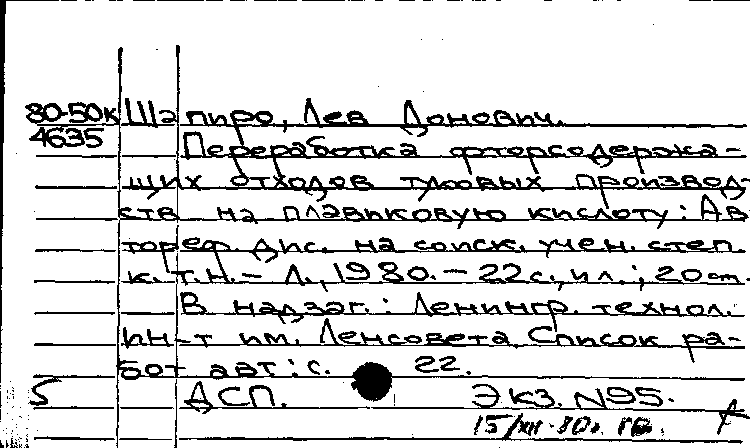 80-50к Шапиро, Лев Донович.
4635 Переработка фторсодержа-
щих отходов туковых производ-
ств на плавиковую кислоту: Ав
тореф. дис. на соиск. учен. степ.
к.т.н. - Л., 1980. - 22 с., ил.; 20 см.
В надзаг.: Ленингр. технол.
ин-т им. Ленсовета. Список ра-
бот авт: с. 22.
5 ДСП. Экз. N95.
15/XII-80г.